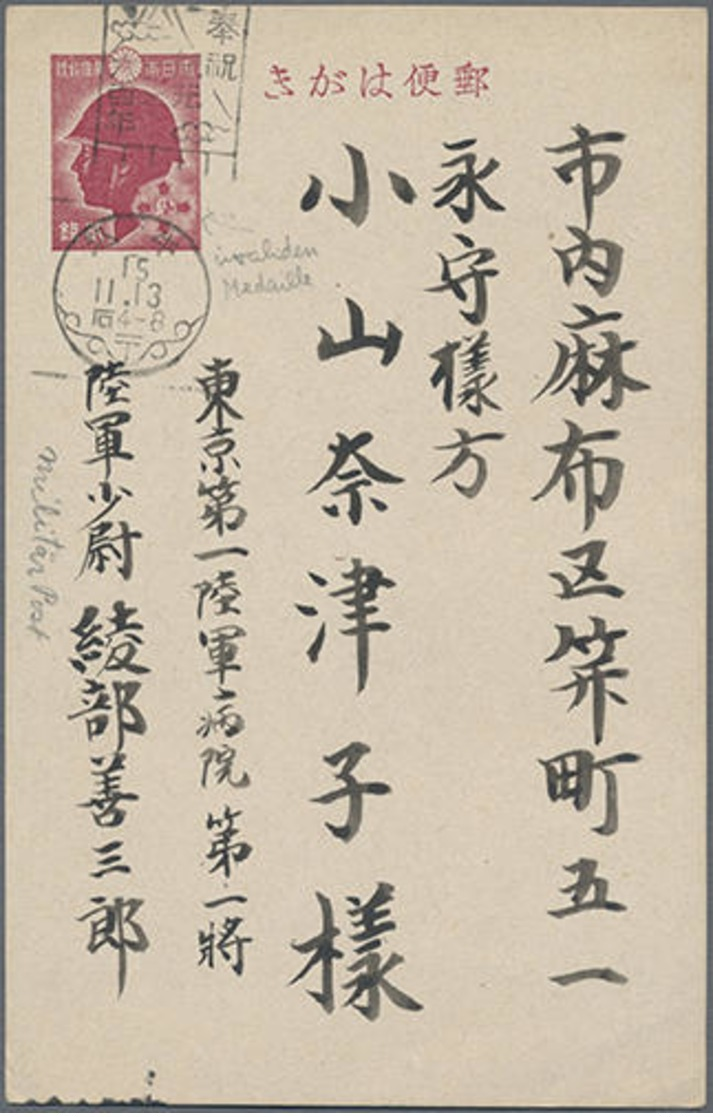 郵便はがき
市内麻布区笄町五一
永守様方
小山奈津子様
東京第一陸軍病院 第一將
陸軍少尉 綾部善三郎
奉祝
15
11.13
后4-8
invaliden
Medaille
Militär Post